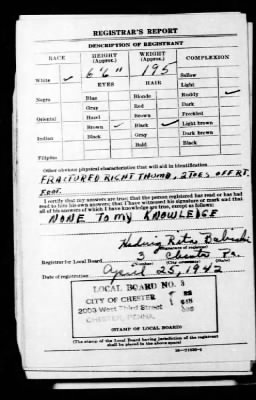 REGISTRAR'S REPORT
DESCRIPTION OF REGISTRANT
RACE HEIGHT (Approx.) WEIGHT (Approx.) COMPLEXION
White ✓ 6'6" 195 Sallow
EYES HAIR Light
Negro Blue Blonde Ruddy ✓
Gray Red Dark
Oriental Hazel Brown Freckled
Brown ✓ Black ✓ Light brown
Indian Black Gray Dark brown
Bald Black
Filipino
Other obvious physical characteristics that will aid in identification
FRACTURED RIGHT THUMB, 2 TOES OFF RT.
FOOT.
I certify that my answers are true; that the person registered has read or has had
read to him his own answers; that I have witnessed his signature or mark and that
all of his answers of which I have knowledge are true, except as follows:
NONE TO MY KNOWLEDGE
Hedwig Rita
(Signature of registrar)
Registrar for Local Board 3 Chester Pa.
(Number) (City or county) (State)
Date of registration April 25, 1942
LOCAL BOARD NO. 3
CITY OF CHESTER
2003 West Third Street
CHESTER, PENNA.
(STAMP OF LOCAL BOARD)
(The stamp of the Local Board having jurisdiction of the registrant
shall be placed in the above space)